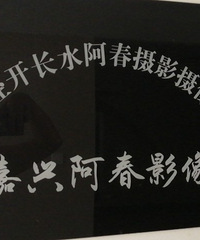 开长水阿春摄影摄
嘉兴阿春影像